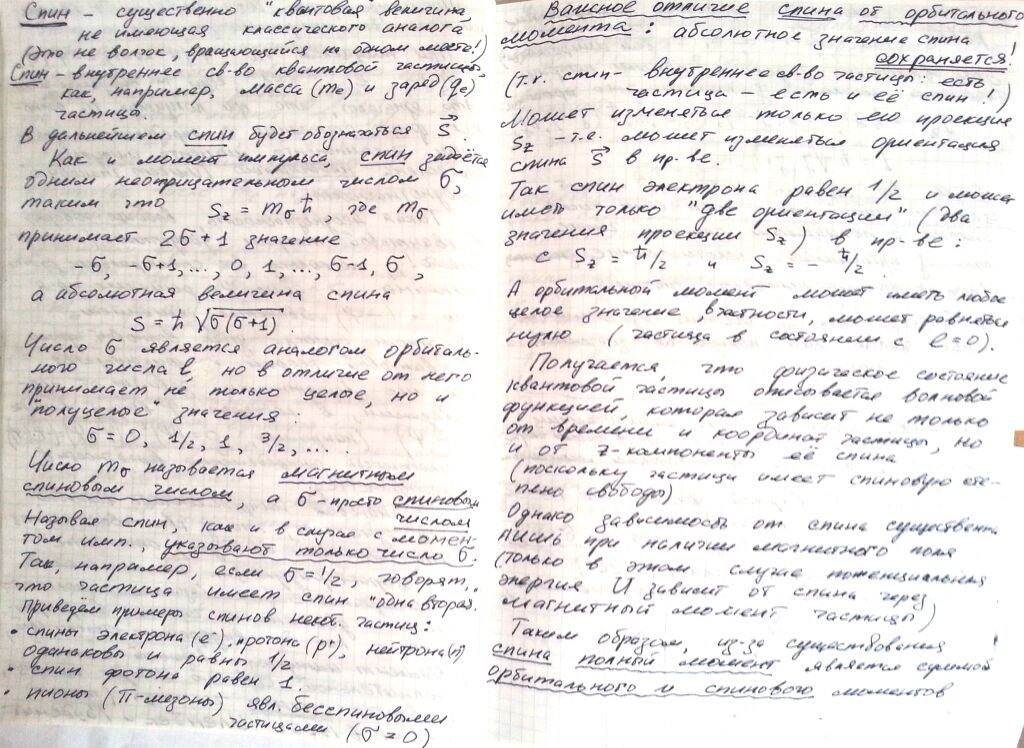 Спин - существенно "квантовая" величина,
не имеющая классического аналога
(Это не волчок, вращающийся на одном месте!)
Спин - внутреннее св-во квантовой частицы,
как, например, масса (me) и заряд (qe)
частицы.
В дальнейшем спин будет обозначаться S⃗.
Как и момент импульса, спин задаётся
одним неотрицательным числом σ,
таким что Sz = mσ ħ, где mσ
принимает 2σ+1 значение
-σ, -σ+1, ..., 0, 1, ..., σ-1, σ,
а абсолютная величина спина
S = ħ √σ(σ+1).
Число σ является аналогом орбиталь-
ного числа ℓ, но в отличие от него
принимает не только целые, но и
"полуцелые" значения:
σ = 0, 1/2, 1, 3/2, ... .
Число mσ называется магнитным
спиновым числом, а σ - просто спиновым
числом
Называя спин, как и в случае с момен-
том имп., указывают только число σ.
Так, например, если σ = 1/2, говорят,
что частица имеет спин "одна вторая".
Приведем примеры спинов некот. частиц:
• спины электрона (e⁻), протона (p⁺), нейтрона (n)
одинаковы и равны 1/2
• спин фотона равен 1.
• пионы (π-мезоны) явл. бесспиновыми
частицами (σ = 0)
Важное отличие спина от орбитального
момента: абсолютное значение спина
сохраняется!
(т.к. спин - внутреннее св-во частицы: есть
частица - есть и её спин!)
Может изменяться только его проекция
Sz - т.е. может изменяться ориентация
спина S⃗ в пр-ве.
Так спин электрона равен 1/2 и может
иметь только "две ориентации" (два
значения проекции Sz) в пр-ве:
с Sz = ħ/2 и Sz = - ħ/2.
А орбитальный момент может иметь любое
целое значение, в частности, может равняться
нулю (частица в состоянии с ℓ = 0).
Получается, что физическое состояние
квантовой частицы описывается волновой
функцией, которая зависит не только
от времени и координат частицы, но
и от z-компоненты её спина
(поскольку частица имеет спиновую сте-
пень свободы)
Однако зависимость от спина существенна
лишь при наличии магнитного поля
(только в этом случае потенциальная
энергия U зависит от спина через
магнитный момент частицы)
Таким образом, из-за существования
спина полный момент является суммой
орбитального и спинового моментов